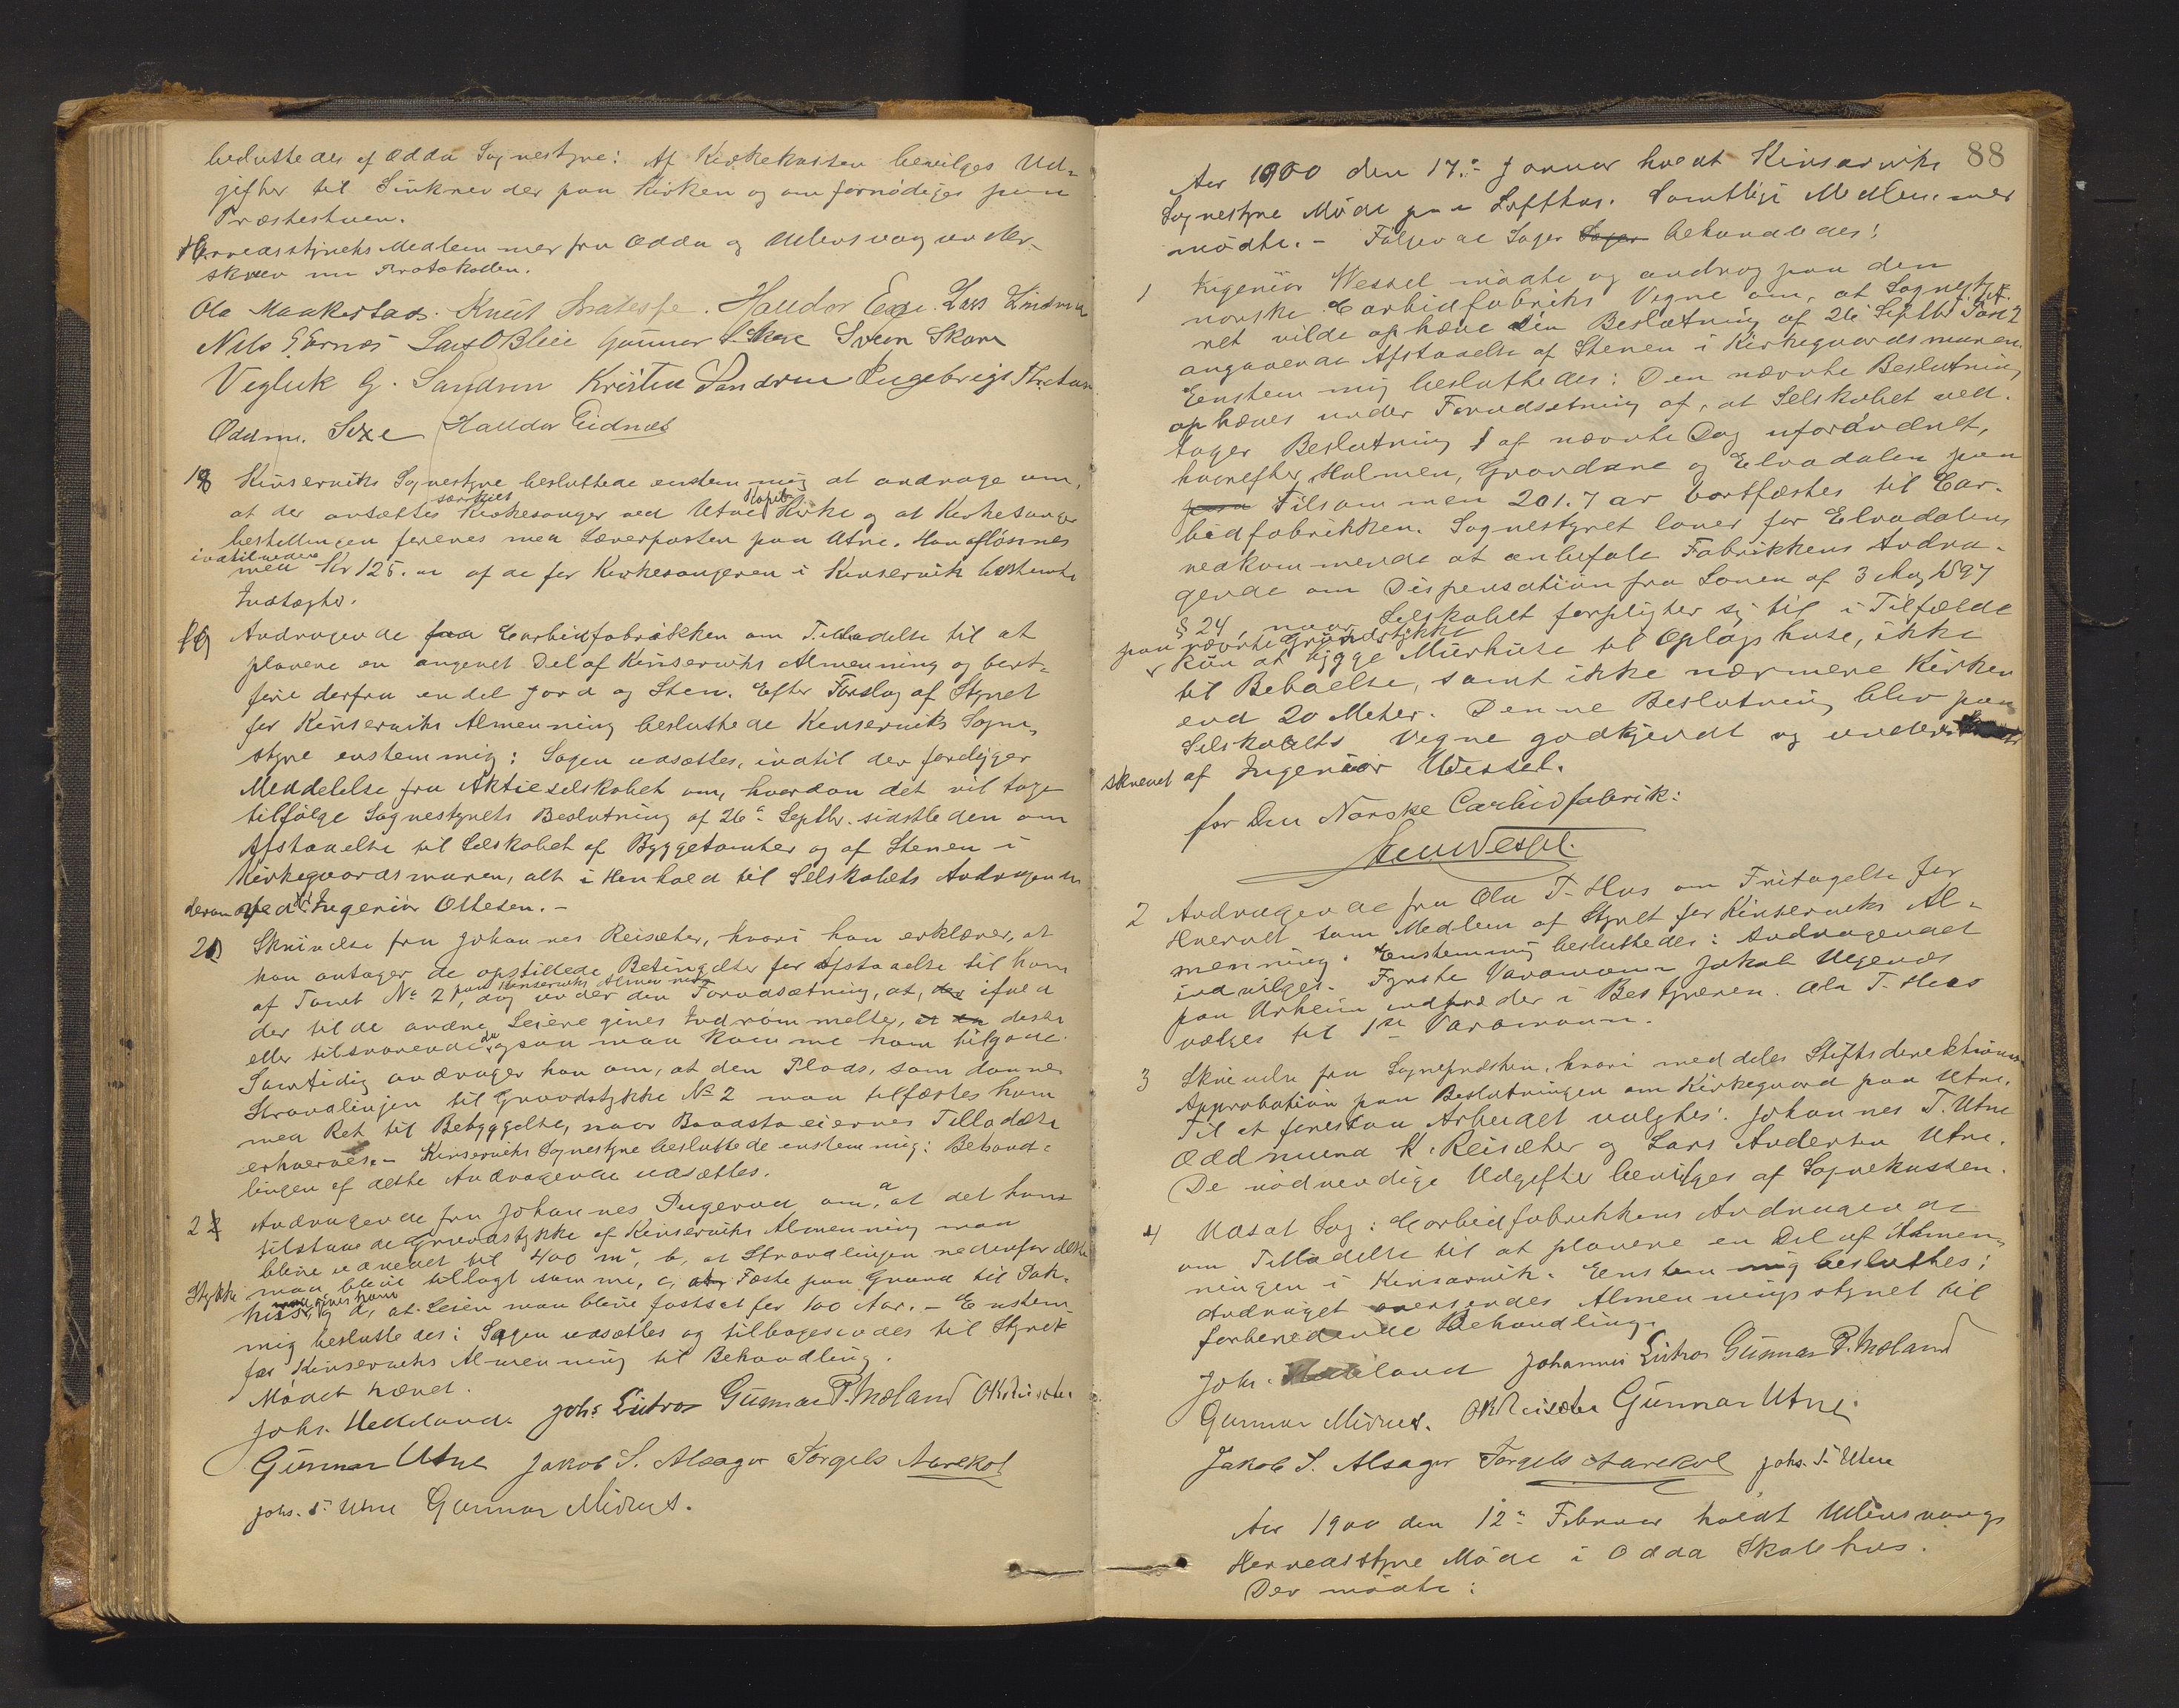 besluttedes af Odda Sognestyre: Af Kirkekassen bevilges Ud-
gifter til Sinkrender paa Kirken og om fornødiges paa
Præstestuen.
Herredsstyrets Medlemmer fra Odda og Ullensvang under-
skrev nu Protokollen.
Ola Maakestad. Knut Bratespe. Halldor Eage. Lars Lindviu
Nils E. Ernæs Lars O Bleie Gunnar Skare Svein Skare
Vegleik G. Sandven Kristen Sandven Ingebrigt
Oddm. Sexe Halldor Eidnes
18 Kinserviks Sognestyre besluttede enstemmig at andrage om,
at der ansættes særskilt Kirkesanger ved Utne Kapel Kirke og at Kirkesanger
bestillingen forenes med Lærerposten paa Utne. Han aflønnes
indtilvidere
med Kr 125. - af de for Kirkesangeren i Kinservik bestemte
Indtægter.
19 Andragende fra Carbidfabrikken om Tilladelse til at
planere en angivet Del af Kinserviks Almenning og bort-
føre derfra endel Jord og Sten. Efter Forslag af Styret
for Kinserviks Almenning besluttede Kinserviks Sogne-
styre enstemmig: Sagen udsættes, indtil der foreligger
Meddelelse fra Aktieselskabet om, hvordan det vil tage
tilfølge Sognestyrets Beslutning af 26de Septbr. sidstleden om
Afstaaelse til Selskabet af Byggetomter og af Stenen i
Kirkegaardsmuren, alt i Henhold til Selskabets Andragende
derom ved Hr Ingeniør Ottesen. -
20 Skrivelse fra Johannes Reisæter, hvori han erklærer, at
han antager de opstillede Betingelser for Afstaaelse til ham
af Tomt No 2 paa Kinserviks Almenning, dog under den Forudsætning, at, der ifald
der til de andre Leiere gives Indrømmelse, at en disse
eller tilsvarende da ogsaa maa komme ham tilgode.
Samtidig andrager han om, at den Plads, som danner
Strandlinjen til Grundstykke No 2 maa tilfæstes ham
med Ret til Bebyggelse, naar Baadstøeiernes Tilladelse
erhverves. - Kinserviks Sognestyre besluttede enstemmig: Behand-
lingen af dette Andragende udsættes.
21 Andragende fra Johannes Ingerud om, a at det ham
tilstaaede Grundstykke af Kinserviks Almenning maa
blive udvidet til 400 m², b, at Strandlinjen nedenfor dette
Stykke maa blive tillagt samme, c, at Fæste paa Grund til Pak-
hus maa gives ham og d, at Leien maa blive fastsat for 100 Aar. - Enstem-
mig besluttedes: Sagen udsættes og tilbagesendes til Styret
for Kinserviks Almenning til Behandling.
Mødet hævet.
Johs. Helleland. Johs Lutro Gunnar P. Mæland OKReisæter
Gunnar Utne Jakob S. Alsager Torgels Aarekol
Johs. T. Utne Gunnar Midnes.
88
Aar 1900 den 17de Januar holdt Kinserviks
Sognestyre Møde paa Lofthus. Samtlige Medlemmer
mødte. - Følgende Sager Sager behandledes:
1 Ingeniør Wessel mødte og androg paa den
norske Carbidfabriks Vegne om, at Sognesty-
ret vilde ophæve sin Beslutning af 26 Septbr Post 2
angaaende Afstaaelse af Stenen i Kirkegaardsmuren.
Enstemmig besluttedes: Den nævnte Beslutning
ophæves under Forudsætning af, at Selskabet ved-
tager Beslutning 1 af nævnte Dag uforandret,
hvorefter Holmen, Grandane og Elvadalen paa
paa Tilsammen 201.7 ar bortfæstes til Car-
bidfabrikken. Sognestyret lover for Elvadalens
vedkommende at anbefale Fabrikkens Andra-
gende om Dispensation fra Loven af 3 Aug 1897
§ 24, naar Selskabet forpligter sig til i Tilfælde
paa nævnte Grundstykke
kun at bygge Murhuse til Oplagshuse, ikke
til Beboelse, samt ikke nærmere Kirken
end 20 Meter. Denne Beslutning blev paa
Selskabets Vegne godkjendt og under-
skrevet af Ingeniør Wessel.
for Den Norske Carbidfabrik:
Wessel.
2 Andragende fra Ola T. Hus om Fritagelse for
Hvervet som Medlem af Styret for Kinserviks Al-
menning. Enstemmig besluttedes: Andragendet
indvilges. Første Varamand Jakob Urgenæs
paa Urheim indtræder i Bestyrelsen. Ola T. Hus
vælges til 1ste Varamann.
3 Skrivelse fra Sognepræsten, hvori meddeles Stiftsdirektionens
Approbation paa Beslutningen om Kirkegaard paa Utne.
Til at forestaa Arbeidet valgtes: Johannes T. Utne
Oddmund K. Reisæter og Lars Andersen Utne.
De nødvendige Udgifter bevilges af Sognekassen.
4 Udsat Sag: Carbidfabrikkens Andragende
om Tilladelse til at planere en Del af Almen-
ningen i Kinsarvik. Enstemmig besluttes:
Andraget oversendes Almenningsstyret til
forberedende Behandling.
Johs. Helleland Johannes Lutro Gunnar P. Mæland
Gunnar Midnes. OKReisæter Gunnar Utne.
Jakob S. Alsager Torgels Aarekol Johs. T. Utne
Aar 1900 den 12te Februar holdt Ullensvangs
Herredsstyre Møde i Odda Skolehus.
Der mødte: